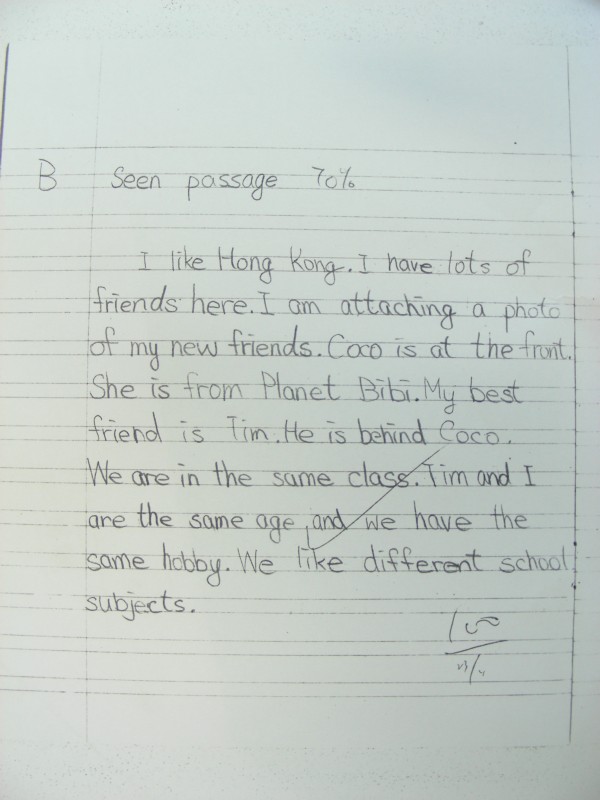 B Seen passage 70%
I like Hong Kong. I have lots of
friends here. I am attaching a photo
of my new friends. Coco is at the front.
She is from Planet Bibi. My best
friend is Tim. He is behind Coco.
We are in the same class. Tim and I
are the same age, and we have the
same hobby. We like different school
subjects.
100